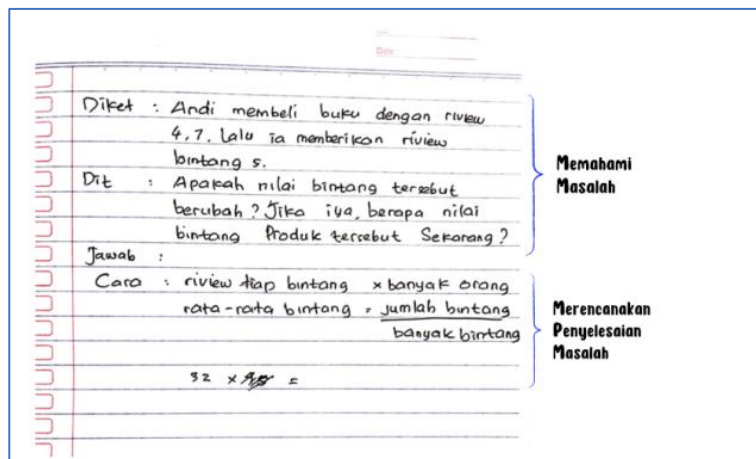 Diket : Andi membeli buku dengan riview
4,7. Lalu ia memberikan riview
bintang 5.
Dit : Apakah nilai bintang tersebut
berubah? Jika iya, berapa nilai
bintang Produk tersebut Sekarang?
Jawab :
Cara : riview tiap bintang × banyak orang
rata-rata bintang = jumlah bintang
banyak bintang
32 × =
Memahami
Masalah
Merencanakan
Penyelesaian
Masalah